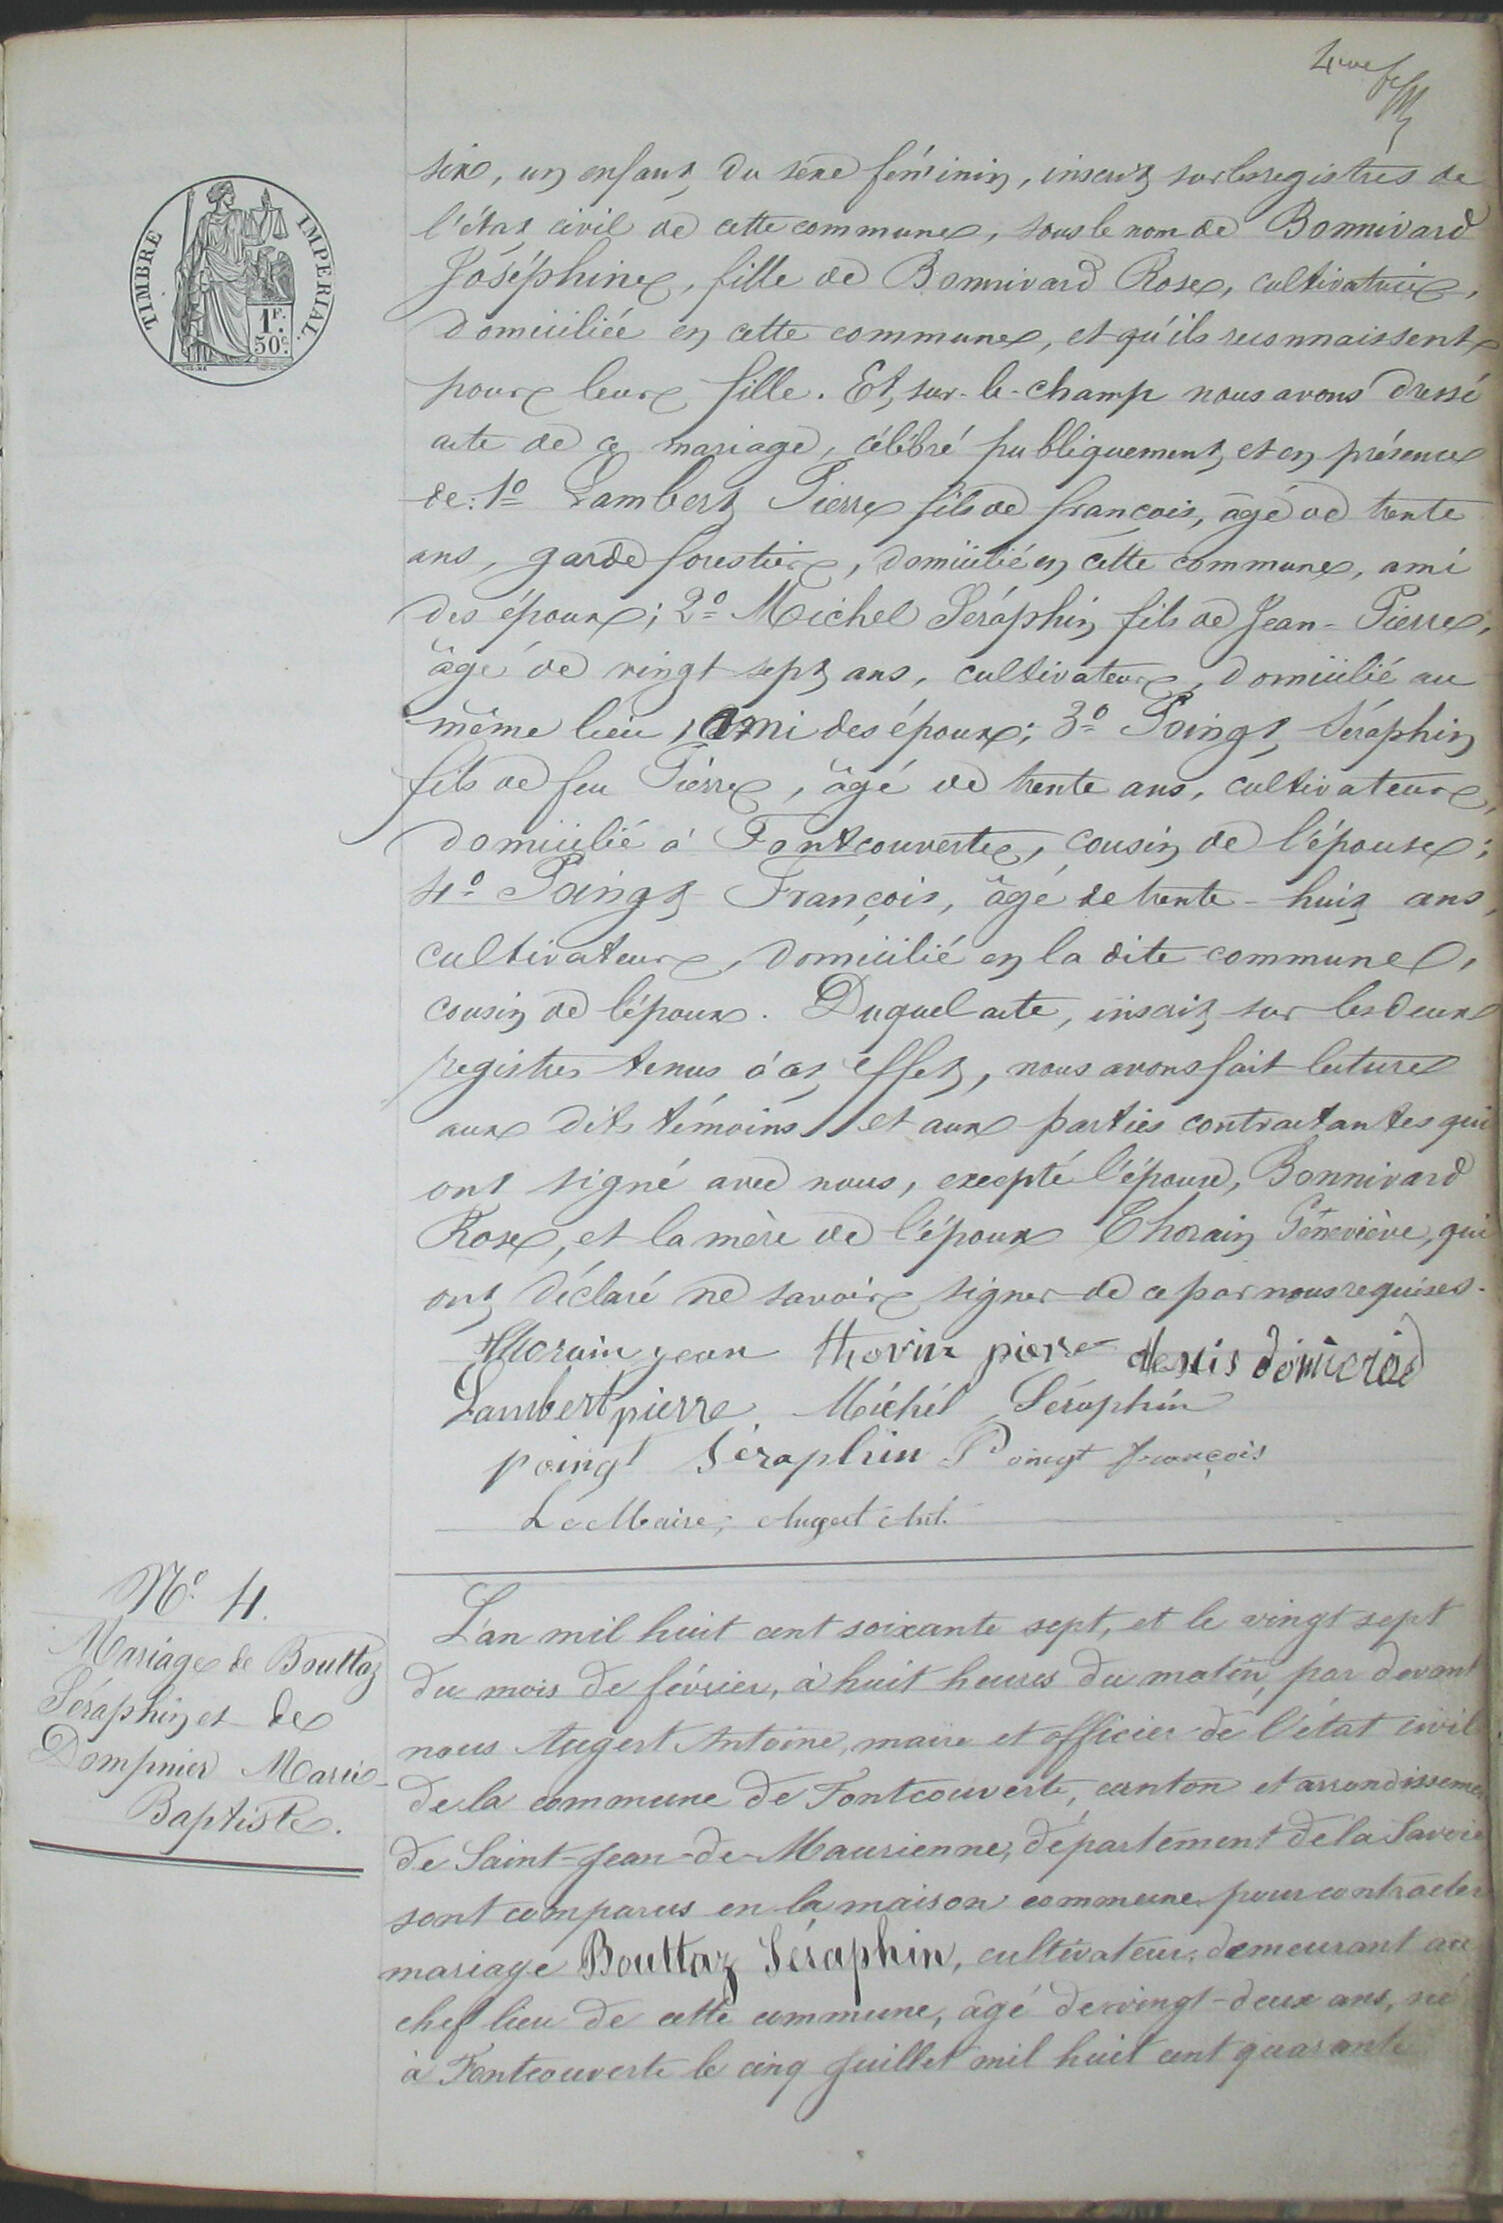 4me f
TIMBRE IMPERIAL.
1F.
50c.
six, un enfant du sexe féminin, inscrit sur les registres de
l'état civil de cette commune, sous le nom de Bonnivard
Joséphine, fille de Bonnivard Rose, cultivatrice,
domiciliée en cette commune, et qu'ils reconnaissent
pour leur fille. Et, sur-le-champ nous avons dressé
acte de ce mariage, célébré publiquement, et en présence
de: 1º Lambert Pierre fils de françois, âgé de trente
ans, garde forestier, domicilié en cette commune, ami
des époux; 2º Michel Séraphin fils de Jean-Pierre,
âgé de vingt sept ans, cultivateur, domicilié au
même lieu, ami des époux; 3º Poingt Séraphin
fils de feu Pierre, âgé de trente ans, cultivateur,
domicilié à Fontcouverte, cousin de l'épouse;
4º Poingt François, âgé de trente-huit ans,
cultivateur, domicilié en la dite commune,
cousin de l'époux. Duquel acte, inscrit sur les deux
registres tenus à cet effet, nous avons fait lecture
aux dits témoins et aux parties contractantes qui
ont signé avec nous, excepté l'épouse, Bonnivard
Rose, et la mère de l'époux Thorain Géneviève, qui
ont déclaré ne savoir signer de ce par nous requises.
thorain jean thorin pierre
Lambert pierre Michél Séraphin
poingt Séraphin Poingt françois
Le Maire, Augert Ant.
Nº 4.
Mariage de Bouttaz
Séraphin et de
Dompnier Marie-
Baptiste.
L'an mil huit cent soixante sept, et le vingt sept
du mois de février, à huit heures du matin, par devant
nous Augert Antoine, maire et officier de l'état civil
de la commune de Fontcouverte, canton et arrondisseme
de Saint-Jean-de-Maurienne, département de la Savoie
sont comparus en la maison commune pour contracter
mariage Bouttaz Séraphin, cultivateur, demeurant au
chef lieu de cette commune, âgé de vingt-deux ans, né
à Fontcouverte le cinq Juillet mil huit cent quarante